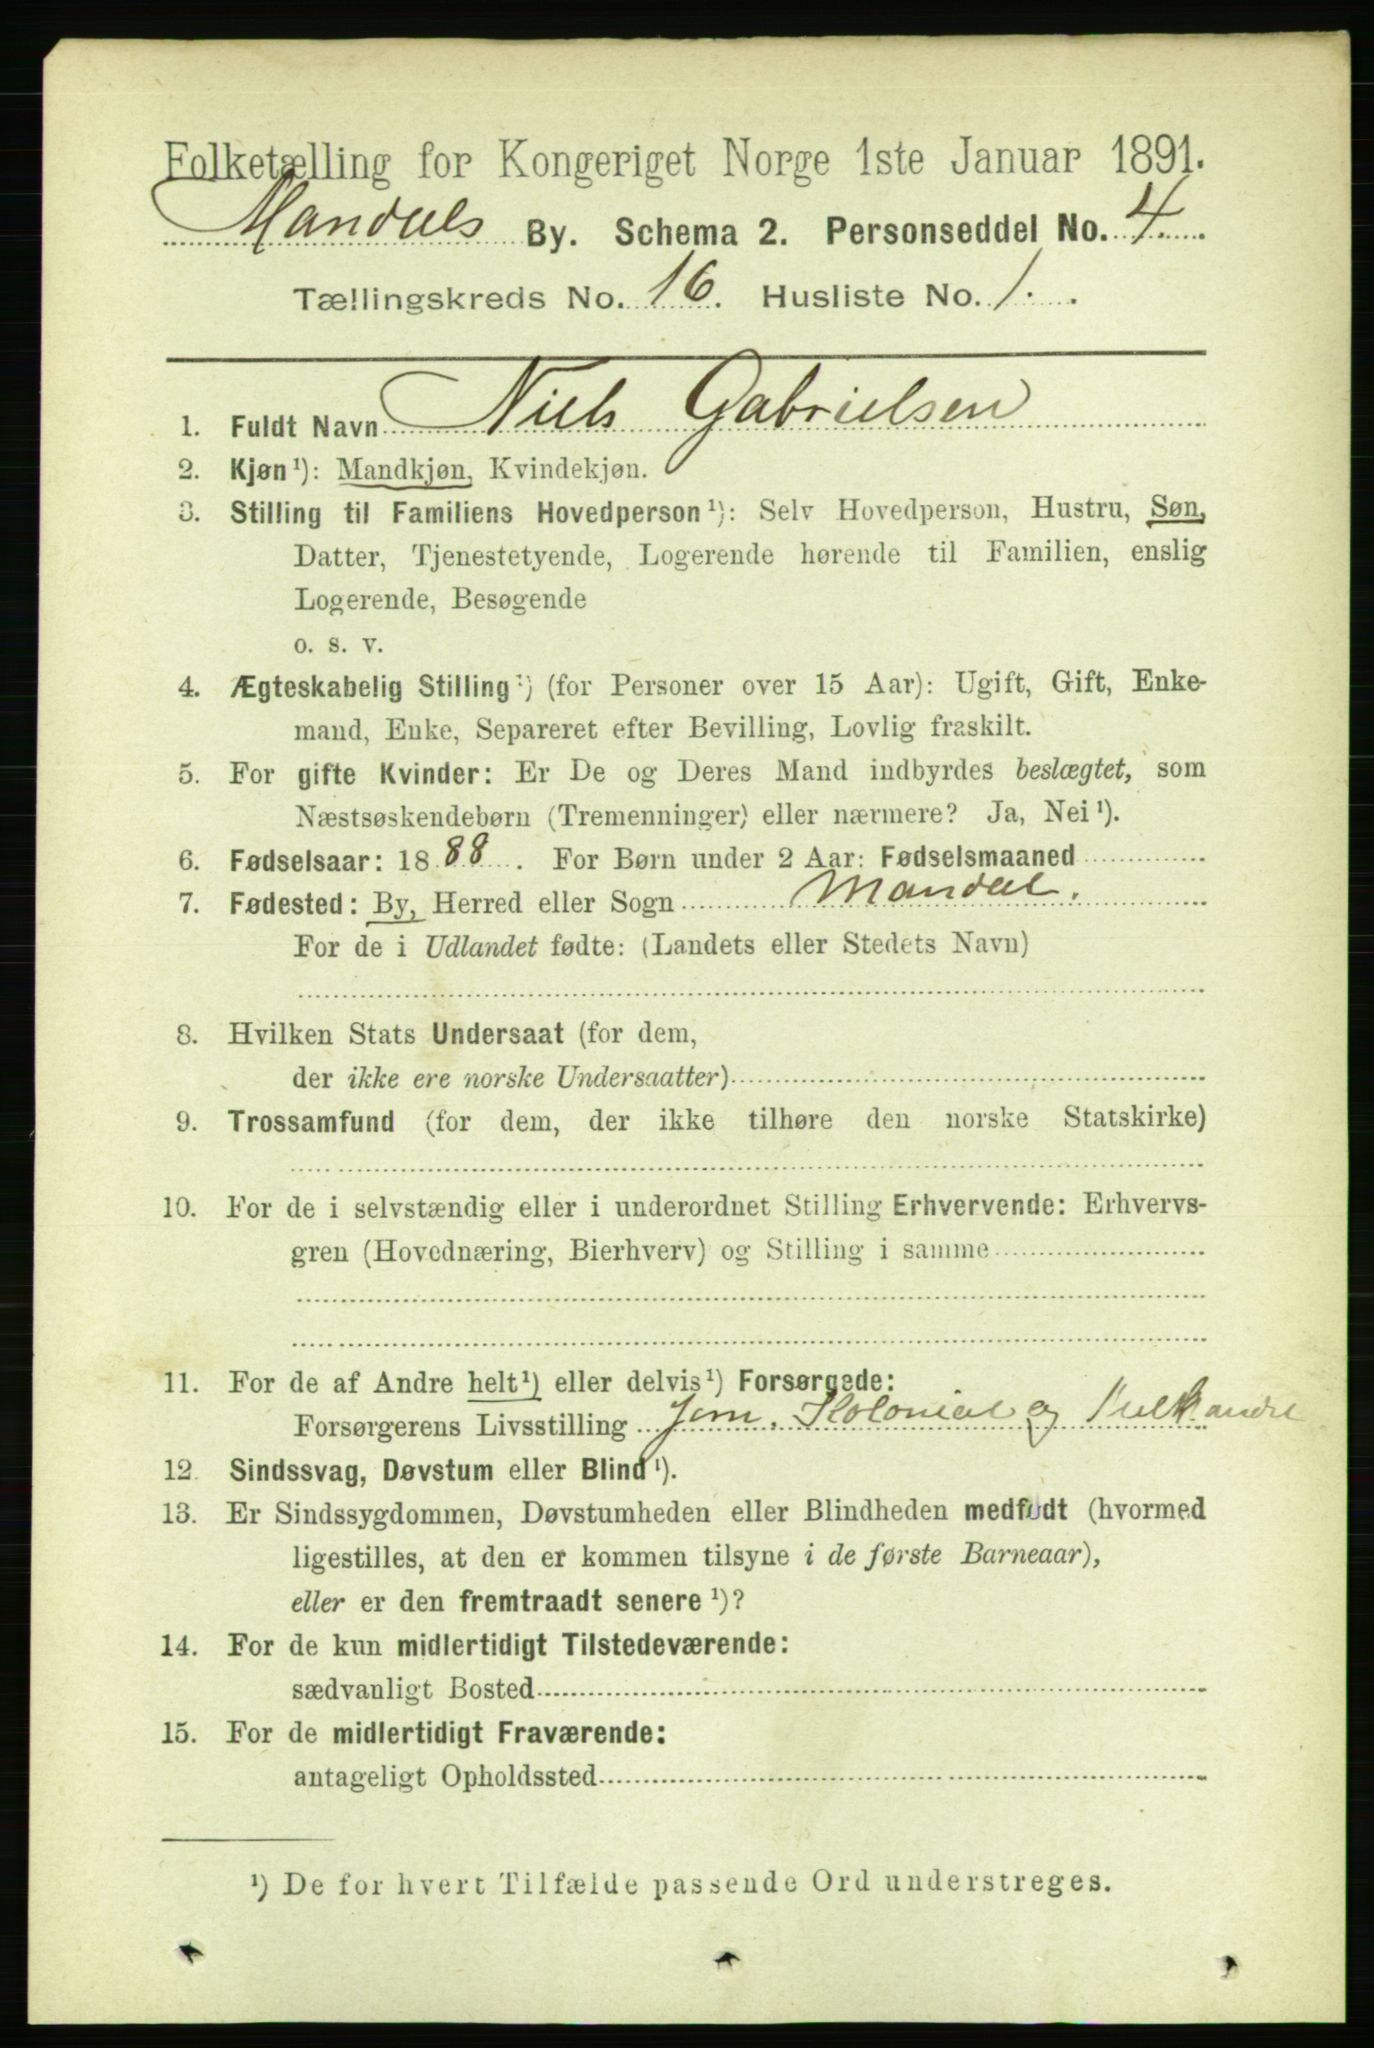 Folketælling for Kongeriget Norge 1ste Januar 1891.
Mandals By. Schema 2. Personseddel No. 4.
Tællingskreds No. 16. Husliste No. 1.
1. Fuldt Navn Niels Gabrielsen
2. Kjøn ¹): Mandkjøn, Kvindekjøn.
3. Stilling til Familiens Hovedperson ¹): Selv Hovedperson, Hustru, Søn,
Datter, Tjenestetyende, Logerende hørende til Familien, enslig
Logerende, Besøgende
o. s. v.
4. Ægteskabelig Stilling ¹) (for Personer over 15 Aar): Ugift, Gift, Enke-
mand, Enke, Separeret efter Bevilling, Lovlig fraskilt.
5. For gifte Kvinder: Er De og Deres Mand indbyrdes beslægtet, som
Næstsøskendebørn (Tremenninger) eller nærmere? Ja, Nei ¹).
6. Fødselsaar: 1888. For Børn under 2 Aar: Fødselsmaaned
7. Fødested: By, Herred eller Sogn Mandal.
For de i Udlandet fødte: (Landets eller Stedets Navn)
8. Hvilken Stats Undersaat (for dem,
der ikke ere norske Undersaatter)
9. Trossamfund (for dem, der ikke tilhøre den norske Statskirke)
10. For de i selvstændig eller i underordnet Stilling Erhvervende: Erhvervs-
gren (Hovednæring, Bierhverv) og Stilling i samme
11. For de af Andre helt ¹) eller delvis ¹) Forsørgede:
Forsørgerens Livsstilling Jern, Kolonial og
12. Sindssvag, Døvstum eller Blind ¹).
13. Er Sindssygdommen, Døvstumheden eller Blindheden medfødt (hvormed
ligestilles, at den er kommen tilsyne i de første Barneaar),
eller er den fremtraadt senere ¹)?
14. For de kun midlertidigt Tilstedeværende:
sædvanligt Bosted
15. For de midlertidigt Fraværende:
antageligt Opholdssted
¹) De for hvert Tilfælde passende Ord understreges.